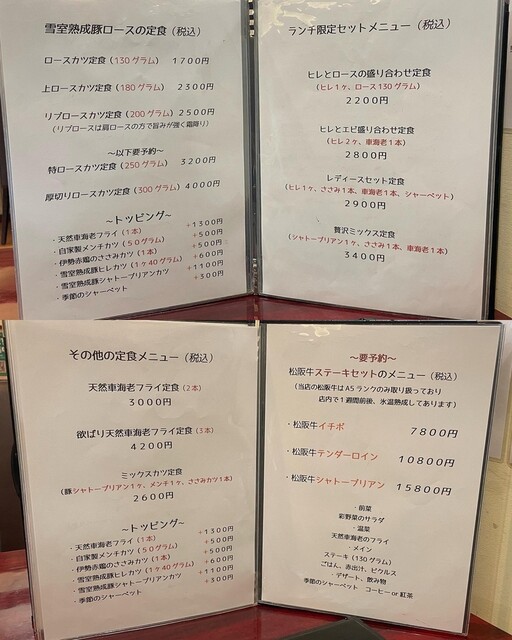 雪室熟成豚ロースの定食（税込）
ロースカツ定食（130グラム） 1700円
上ロースカツ定食（180グラム） 2300円
リブロースカツ定食（200グラム） 2500円
（リブロースは肩ロースの方で旨みが強く霜降り）
～以下要予約～
特ロースカツ定食（250グラム） 3200円
厚切りロースカツ定食（300グラム） 4000円
～トッピング～
・天然車海老フライ（1本） +1300円
・自家製メンチカツ（50グラム） +500円
・伊勢赤鶏のささみカツ（1本） +500円
・雪室熟成豚ヒレカツ（1ヶ40グラム） +600円
・雪室熟成豚シャトーブリアンカツ +1100円
・季節のシャーベット +300円
ランチ限定セットメニュー（税込）
ヒレとロースの盛り合わせ定食
（ヒレ1ヶ、ロース130グラム）
2200円
ヒレとエビ盛り合わせ定食
（ヒレ2ヶ、車海老1本）
2800円
レディースセット定食
（ヒレ1ヶ、ささみ1本、車海老1本、シャーベット）
2900円
贅沢ミックス定食
（シャトーブリアン1ヶ、ささみ1本、車海老1本）
3400円
その他の定食メニュー（税込）
天然車海老フライ定食（2本）
3000円
欲ばり天然車海老フライ定食（3本）
4200円
ミックスカツ定食
（豚シャトーブリアン1ヶ、メンチ1ヶ、ささみカツ1本）
2600円
～トッピング～
・天然車海老フライ（1本） +1300円
・自家製メンチカツ（50グラム） +500円
・伊勢赤鶏のささみカツ（1本） +500円
・雪室熟成豚ヒレカツ（1ヶ40グラム） +600円
・雪室熟成豚シャトーブリアンカツ +1100円
・季節のシャーベット +300円
～要予約～
松阪牛ステーキセットのメニュー（税込）
（当店の松阪牛はA5ランクのみ取り扱っており
店内で1週間前後、氷温熟成してあります）
・松阪牛イチボ 7800円
・松阪牛テンダーロイン 10800円
・松阪牛シャトーブリアン 15800円
・前菜
彩野菜のサラダ
・温菜
天然車海老のフライ
・メイン
ステーキ（130グラム）
ごはん、赤出汁、ピクルス
デザート、飲み物
季節のシャーベット コーヒーor紅茶